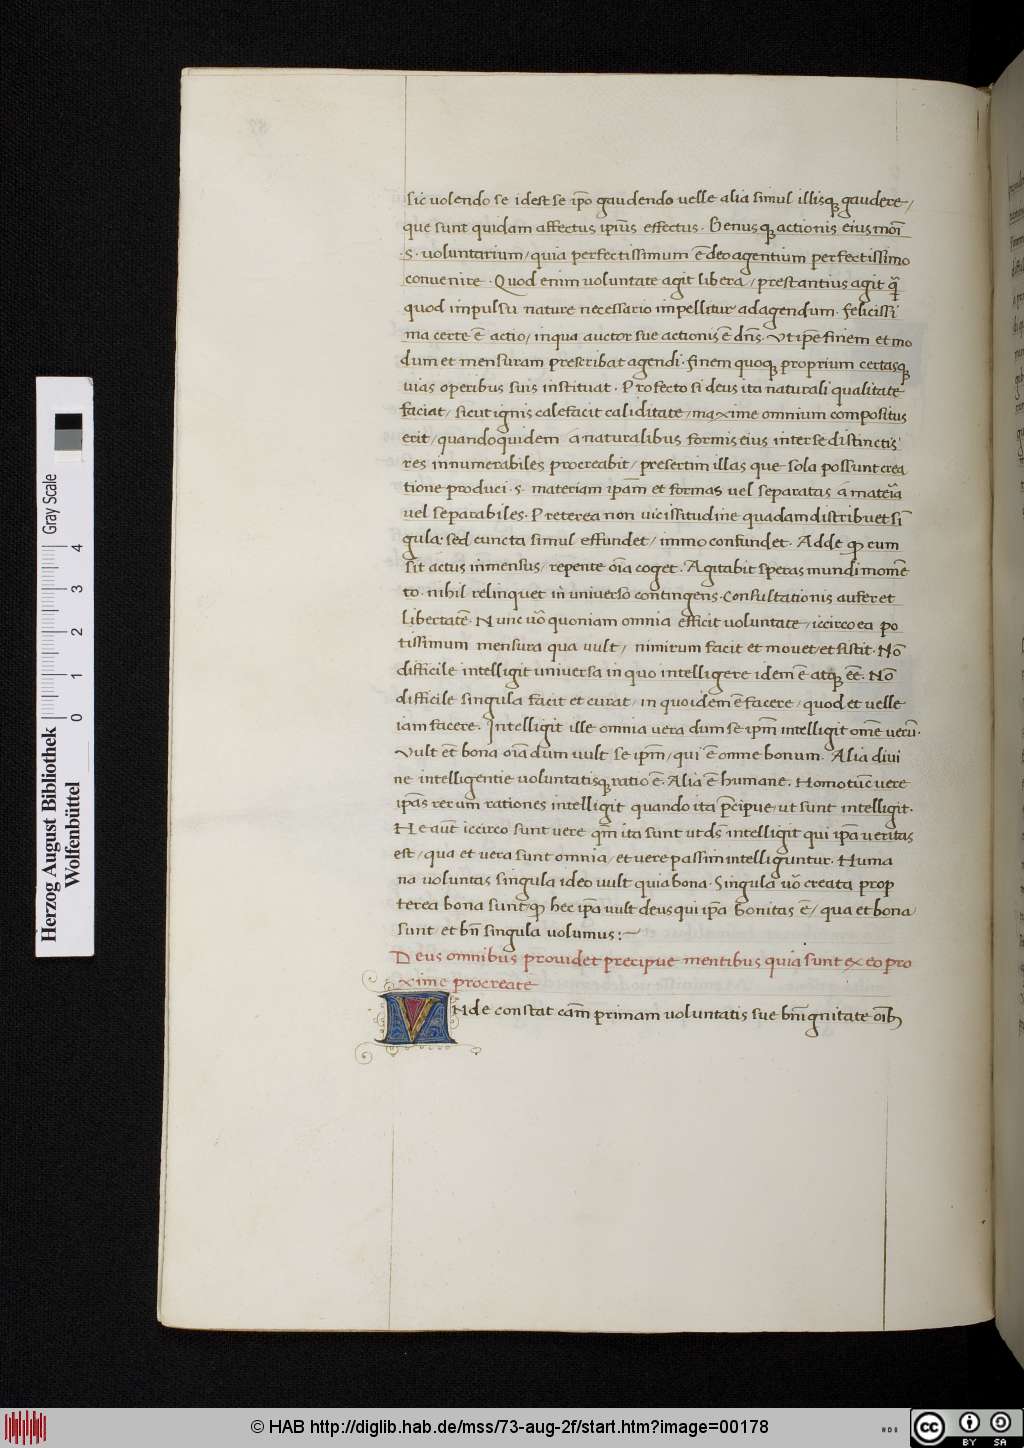 sic uolendo se idest se ip̄o gaudendo uelle alia simul illisqꝫ gaudere/
que sunt quidam affectus ipīus effectus. Genus qꝫ actionis eius moī
.s. uoluntarium/ quia perfectissimum ē deo agentium perfectissimo
conuenire. Quod enim uoluntate agit libera/ prestantius agit q̄
quod impulsu nature necessario impellitur ad agendum. felicissi
ma certe ē actio/ in qua auctor sue actionis ē dn̄s. Vt ip̄e finem et mo
dum et mensuram prescribat agendi. finem quoqꝫ proprium certasqꝫ
uias operibus suis instituat. Profecto si deus ita naturali qualitate
faciat/ sicut ignis calefacit caliditate/ maxime omnium compositus
erit/ quandoquidem a naturalibus formis eius inter se distinctis
res innumerabiles procreabit/ presertim illas que sola possunt crea
tione produci .s. materiam ip̄am et formas uel separatas a mater̄ia
uel separabiles. Preterea non uicissitudine quadam distribuet sī
gula. sed cuncta simul effundet/ immo confundet. Adde ꝙ cum
sit actus inmensus/ repente oīa coget. Agitabit speras mundi momē
to. nihil relinquet in uniuerso contingens. Consultationis auferet
libertatē. Nunc uō quoniam omnia efficit uoluntate/ iccirco ea po
tissimum mensura qua uult/ nimirum facit et mouet/ et sistit. Nō
difficile intelligit uniuersa in quo intelligere idem ē atqꝫ eē. Nō
difficile singula facit et curat/ in quo idem ē facere/ quod et uelle
iam facere. Intelligit ille omnia uera dum se ip̄m intelligit omē uerū.
Vult et bona oīa dum uult se ip̄m/ qui ē omne bonum. Alia diui
ne intelligentie uoluntatisqꝫ ratio ē. Alia ē humane. Homo tūc uere
ip̄as rerum rationes intelligit quando ita p̄cipue/ ut sunt intelligit.
He aut̄ iccirco sunt uere qm̄ ita sunt ut ds̄ intelligit qui ip̄a ueritas
est/ qua et uera sunt omnia/ et uere passim intelliguntur. Huma
na uoluntas singula ideo uult quia bona. Singula uō creata prop
terea bona sunt ꝙ hec ip̄a uult deus qui ip̄a bonitas ē/ qua et bona
sunt et bn̄ singula uolumus:~
Deus omnibus prouidet precipue mentibus quia sunt ex eo pro
xime procreate
VNde constat cām primam uoluntatis sue bn̄ignitate oīb
Herzog August Bibliothek
Wolfenbüttel
0 1 2 3 4
Gray Scale
© HAB http://diglib.hab.de/mss/73-aug-2f/start.htm?image=00178
HAB
cc BY SA